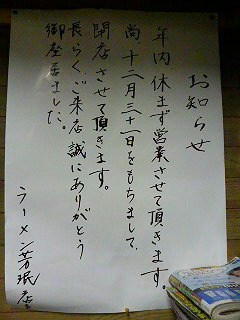 お知らせ
年内休まず営業させて頂きます。
尚、十二月三十一日をもちまして、
閉店させて頂きます。
長らくご来店、誠にありがとう
御座居ました。
ラーメン芳珉